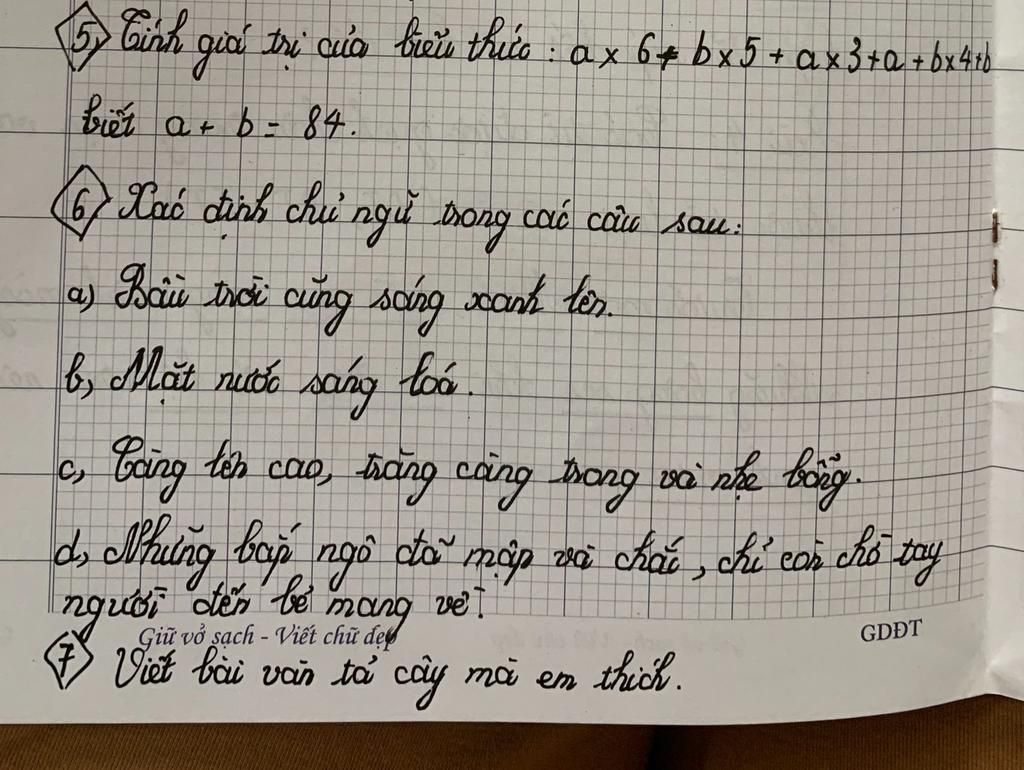 5, Tính giá trị của biểu thức : a x 6 + b x 5 + a x 3 + a + b x 4 + b
biết a + b = 84.
6, Xác định chủ ngữ trong các câu sau:
a) Bầu trời cũng sáng xanh lên.
b, Mặt nước sáng loá.
c, Càng lên cao, trăng càng trong và nhẹ bỗng.
d, Những bắp ngô đã mập và chắc, chỉ còn chờ tay
người đến bẻ mang về.
Giữ vở sạch - Viết chữ đẹp GDĐT
7, Viết bài văn tả cây mà em thích.